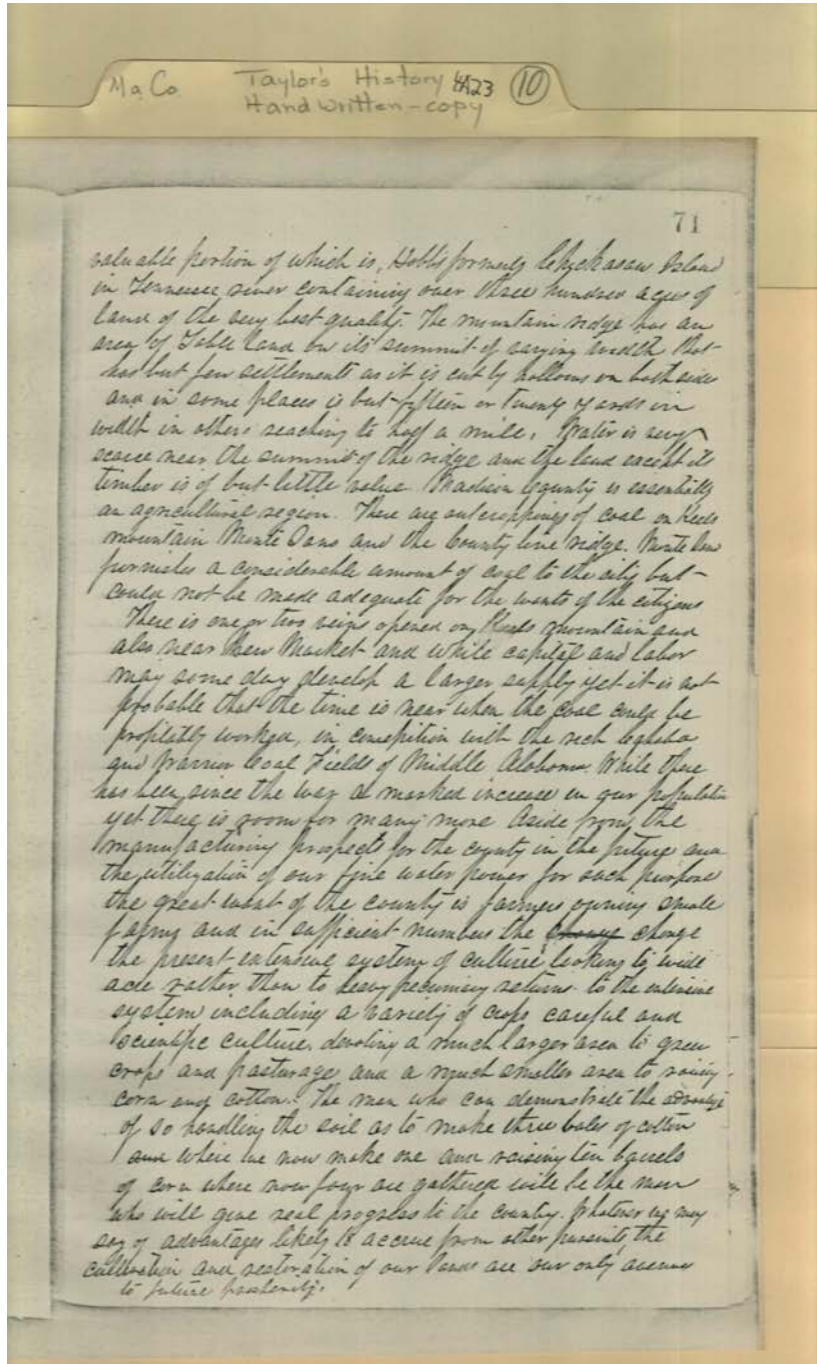 Ma Co Taylor's History 4A23 10
Handwritten-copy
71
valuable portion of which is, Hobbs formerly Chickasaw Island
in Tennessee river containing over three hundred acres of
land of the very best quality. The mountain ridge has an
area of Table land on its summit of varying width that
has but few settlements as it is cut by hollows on both sides
and in some places is but fifteen or twenty yards in
width in others reaching to half a mile. Water is very
scarce near the summit of the ridge and the land except its
timber is of but little value. Madison County is essentially
an agricultural region. There are outcroppings of coal on Keels
mountain Monte Sano and the County line ridge. Monte Sano
furnishes a considerable amount of coal to the city but
could not be made adequate for the wants of the citizens
There is one or two veins opened on Keels mountain and
also near New Market and while capital and labor
may some day develop a larger supply yet it is not
probable that the time is near when the coal could be
profitably worked, in competition with the rich Cahaba
and Warrior Coal Fields of Middle Alabama. While there
has been since the war a marked increase in our population
yet there is room for many more Aside from the
manufacturing prospects for the county in the future and
the utilization of our fine water power for such purpose
the great want of the county is farmers owning small
farms and in sufficient numbers the change change
the present extensive system of culture looking to wide
acre rather than to heavy pecuniary returns to the intensive
system including a variety of crops careful and
scientific culture, devoting a much larger area to green
crops and pasturage and a much smaller area to raising
corn and cotton. The man who can demonstrate the advantage
of so handling the soil as to make three bales of cotton
and where we now make one and raising ten barrels
of corn where now four are gathered will be the man
who will give real progress to the country. Whatever we may
say of advantages likely to accrue from other pursuits, the
cultivation and restoration of our lands are our only avenues
to future prosperity.